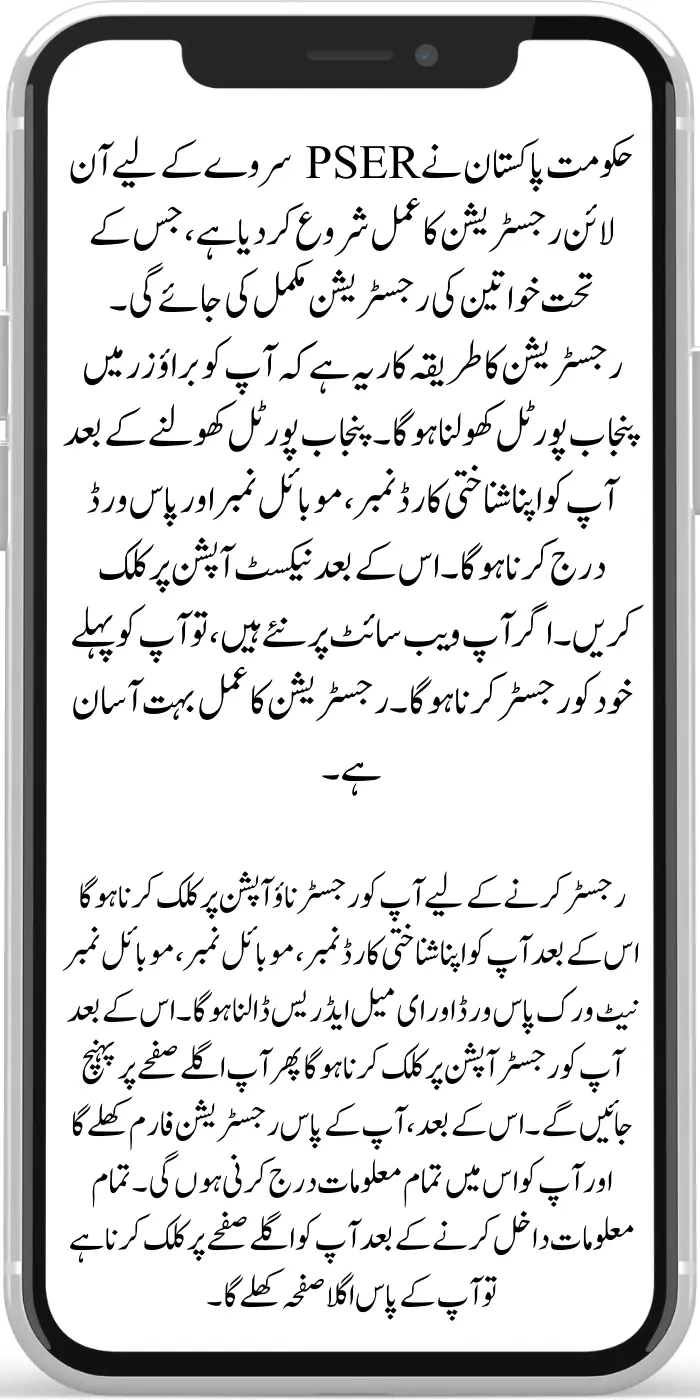 حکومت پاکستان نے PSER سروے کے لیے آن
لائن رجسٹریشن کا عمل شروع کر دیا ہے، جس کے
تحت خواتین کی رجسٹریشن مکمل کی جائے گی۔
رجسٹریشن کا طریقہ کار یہ ہے کہ آپ کو براؤزر میں
پنجاب پورٹل کھولنا ہوگا۔ پنجاب پورٹل کھولنے کے بعد
آپ کو اپنا شناختی کارڈ نمبر، موبائل نمبر اور پاس ورڈ
درج کرنا ہوگا۔ اس کے بعد نیکسٹ آپشن پر کلک
کریں۔ اگر آپ ویب سائٹ پر نئے ہیں، تو آپ کو پہلے
خود کو رجسٹر کرنا ہوگا۔ رجسٹریشن کا عمل بہت آسان
ہے۔
رجسٹر کرنے کے لیے آپ کو رجسٹر ناؤ آپشن پر کلک کرنا ہوگا
اس کے بعد آپ کو اپنا شناختی کارڈ نمبر، موبائل نمبر، موبائل نمبر
نیٹ ورک پاس ورڈ اور ای میل ایڈریس ڈالنا ہوگا۔ اس کے بعد
آپ کو رجسٹر آپشن پر کلک کرنا ہوگا پھر آپ اگلے صفحے پر پہنچ
جائیں گے۔ اس کے بعد، آپ کے پاس رجسٹریشن فارم کھلے گا
اور آپ کو اس میں تمام معلومات درج کرنی ہوں گی۔ تمام
معلومات داخل کرنے کے بعد آپ کو اگلے صفحے پر کلک کرنا ہے
تو آپ کے پاس اگلا صفحہ کھلے گا۔